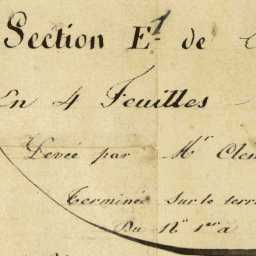 Section E.1 de
En 4 Feuilles
Levée par Mr Clem
Terminée sur le terr
Du No 1er a